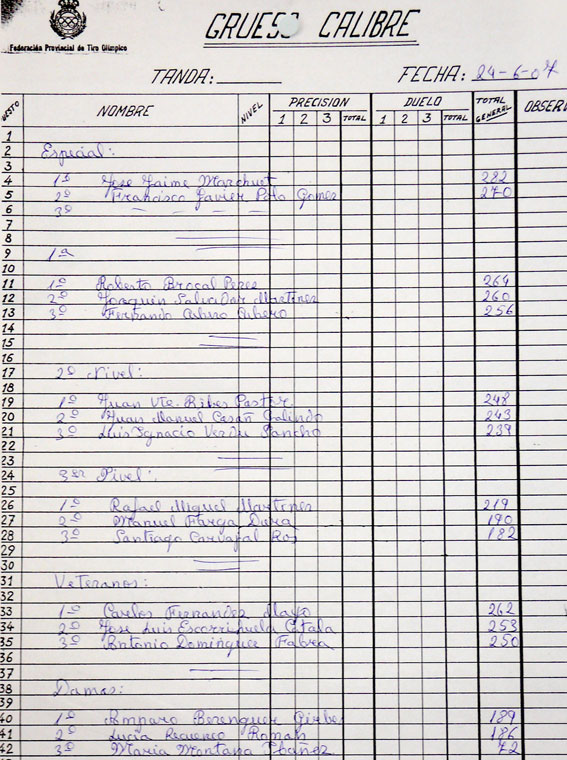 Federación Provincial de Tiro Olímpico
GRUESO CALIBRE
TANDA: FECHA: 24-6-07
NOMBRE NIVEL PRECISION DUELO TOTAL GENERAL
1 2 3 TOTAL 1 2 3 TOTAL
1
2 Especial:
3
4 1º Jose Jaime Marchuet 282
5 2º Francisco Javier Polo Gomez 270
6 3º — — — — —
7
8
9 1ª
10
11 1º Roberto Brocal Perez 264
12 2º Joaquin Salvador Martinez 260
13 3º Fernando Albero 256
14
15
16
17 2º Nivel:
18
19 1º Juan Vte. Ribes Pastor 248
20 2º Juan Manuel Galindo 243
21 3º Luis Ignacio Verdu Sancho 239
22
23
24 3er Nivel:
25
26 1º Rafael Miguel Martinez 219
27 2º Manuel Farga 190
28 3º Santiago Carvajal Ros 182
29
30
31 Veteranos:
32
33 1º Carlos Fernandez Mayo 262
34 2º Jose Luis Escorihuela Catala 253
35 3º Antonio Dominguez Fabra 250
36
37
38 Damas:
39
40 1º Amparo Berenguer 189
41 2º Lucía Recuenco Roman 186
42 3º Maria Montana Ibañez 72